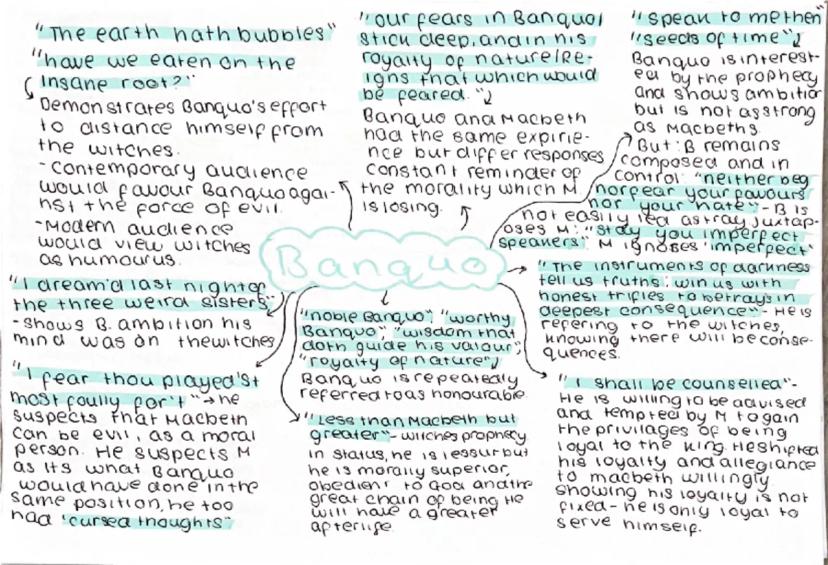 "The earth hath bubbles"
"have we eaten on the
insane root?"
Demonstrates Banquo's effort
to distance himself from
the witches.
- Contemporary audience
would favour Banquo agai-
nst the force of evil.
- Modern audience
would view witches
as humourus.
"our fears in Banquo/
stick deep, and in his
royalty of nature/Re-
igns that which would
be feared."
Banquo and Macbeth
had the same expirie-
nce but differ responses
constant reminder of
the morality which M
is losing.
"speak to me then"
"seeds of time"
Banquo is interest-
ed by the prophecy
and shows ambition
but is not as strong
as Macbeths.
But: B remains
composed and in
control. "neither beg
nor fear your favours
nor your hate" - B is
not easily led astray juxtap-
oses M: "stay you imperfect
speakers". M ignoses 'imperfect'
Banquo
"I dream'd last night of
the three weird sisters"
- shows B. ambition his
mind was on the witches
"noble Banquo", "worthy
Banquo", "wisdom that
doth guide his valour",
"royalty of nature"
Banquo is repeatedly
referred to as honourable.
"The instruments of darkness
tell us truths; win us with
honest trifles to betrays in
deepest consequence" - He is
refering to the witches,
knowing there will be conse-
quences.
"I fear thou played'st
most foully for't" → he
suspects that Macbeth
can be evil, as a moral
person. He suspects M
as its what Banquo
would have done in the
same position, he too
had "cursed thoughts"
"Less than Macbeth but
greater" - witches prophecy
in status, he is lessur but
he is morally superior,
obedient to God and the
great chain of being. He
will have a greater
afterlife.
"I shall be counselled" -
He is willing to be advised
and tempted by M to gain
the privilages of being
loyal to the king. He shifted
his loyalty and allegiance
to macbeth willingly
showing his loyalty is not
fixed - he is only loyal to
serve himself.